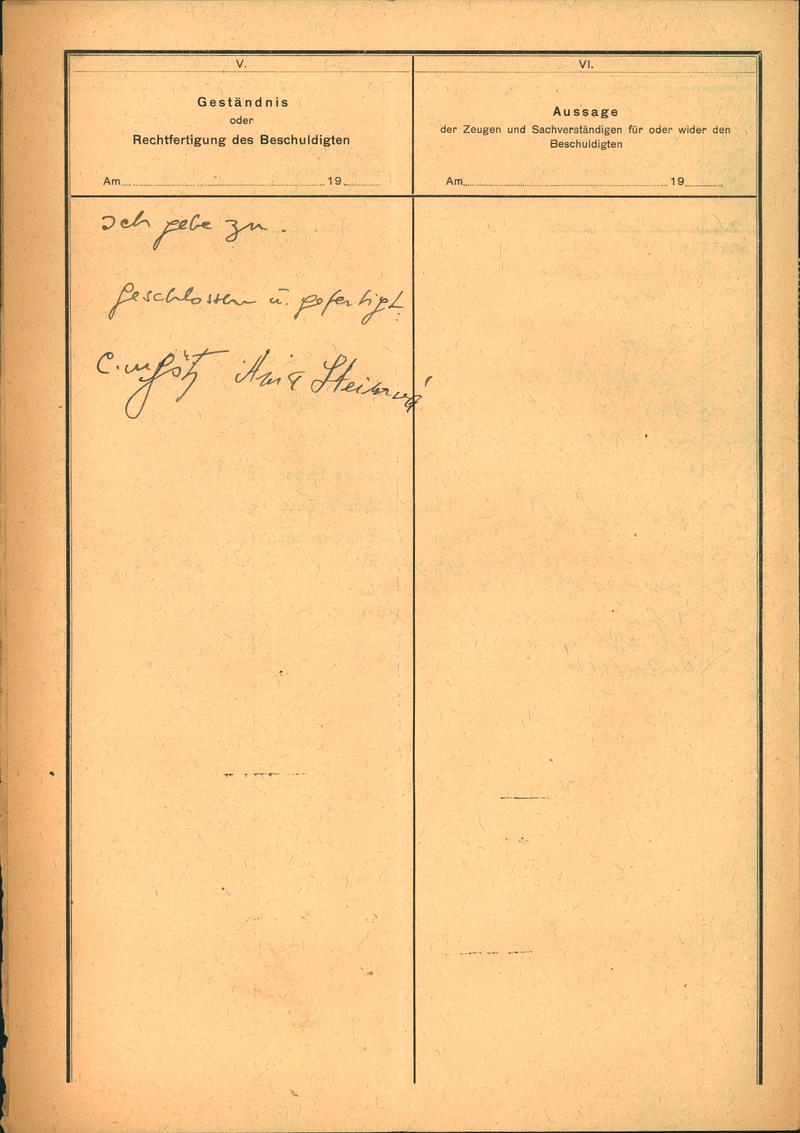 V.
Geständnis
oder
Rechtfertigung des Beschuldigten
Am 19
Ich gebe zu.
Geschlossen u. gefertigt.
VI.
Aussage
der Zeugen und Sachverständigen für oder wider den
Beschuldigten
Am 19